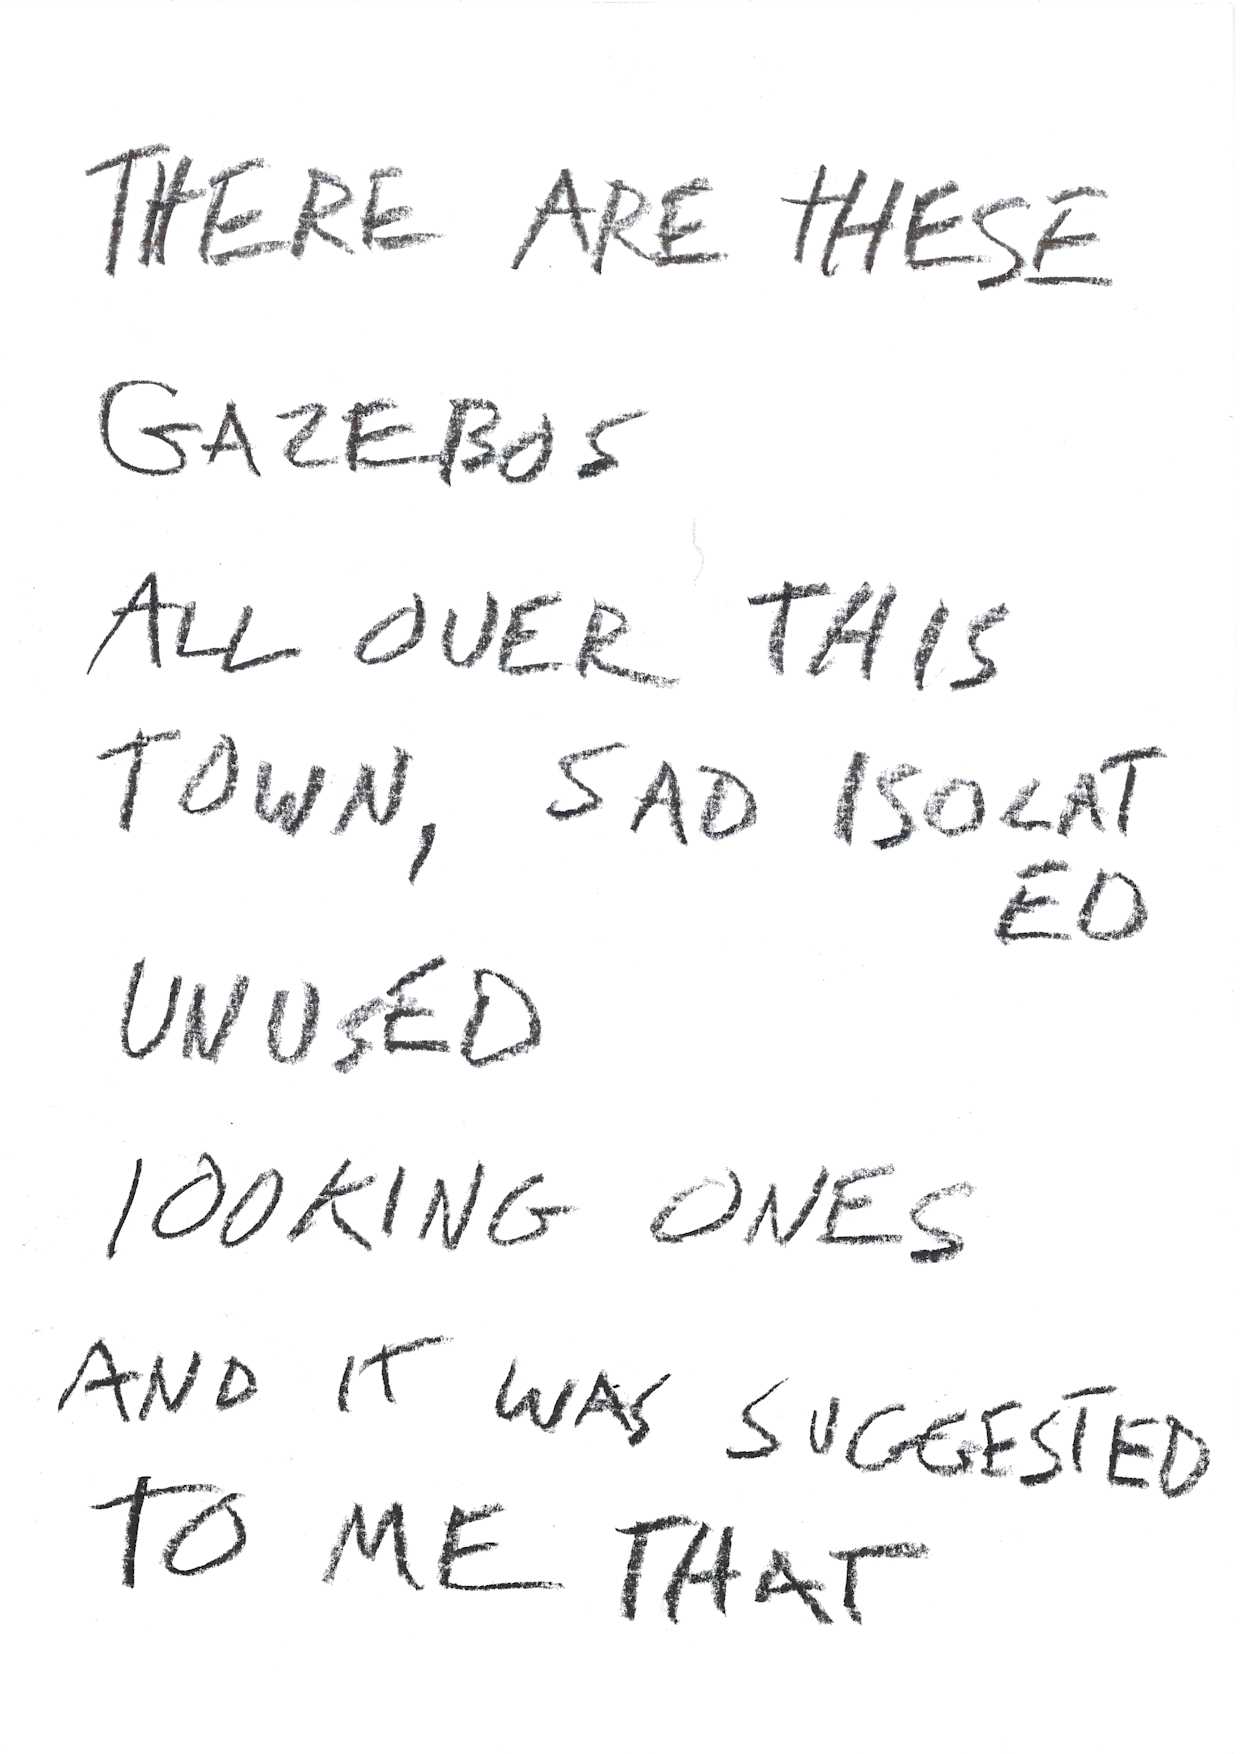 THERE ARE THESE
GAZEBOS
ALL OVER THIS
TOWN, SAD ISOLAT
ED
UNUSED
lOOKING ONES
AND IT WAS SUGGESTED
TO ME THAT